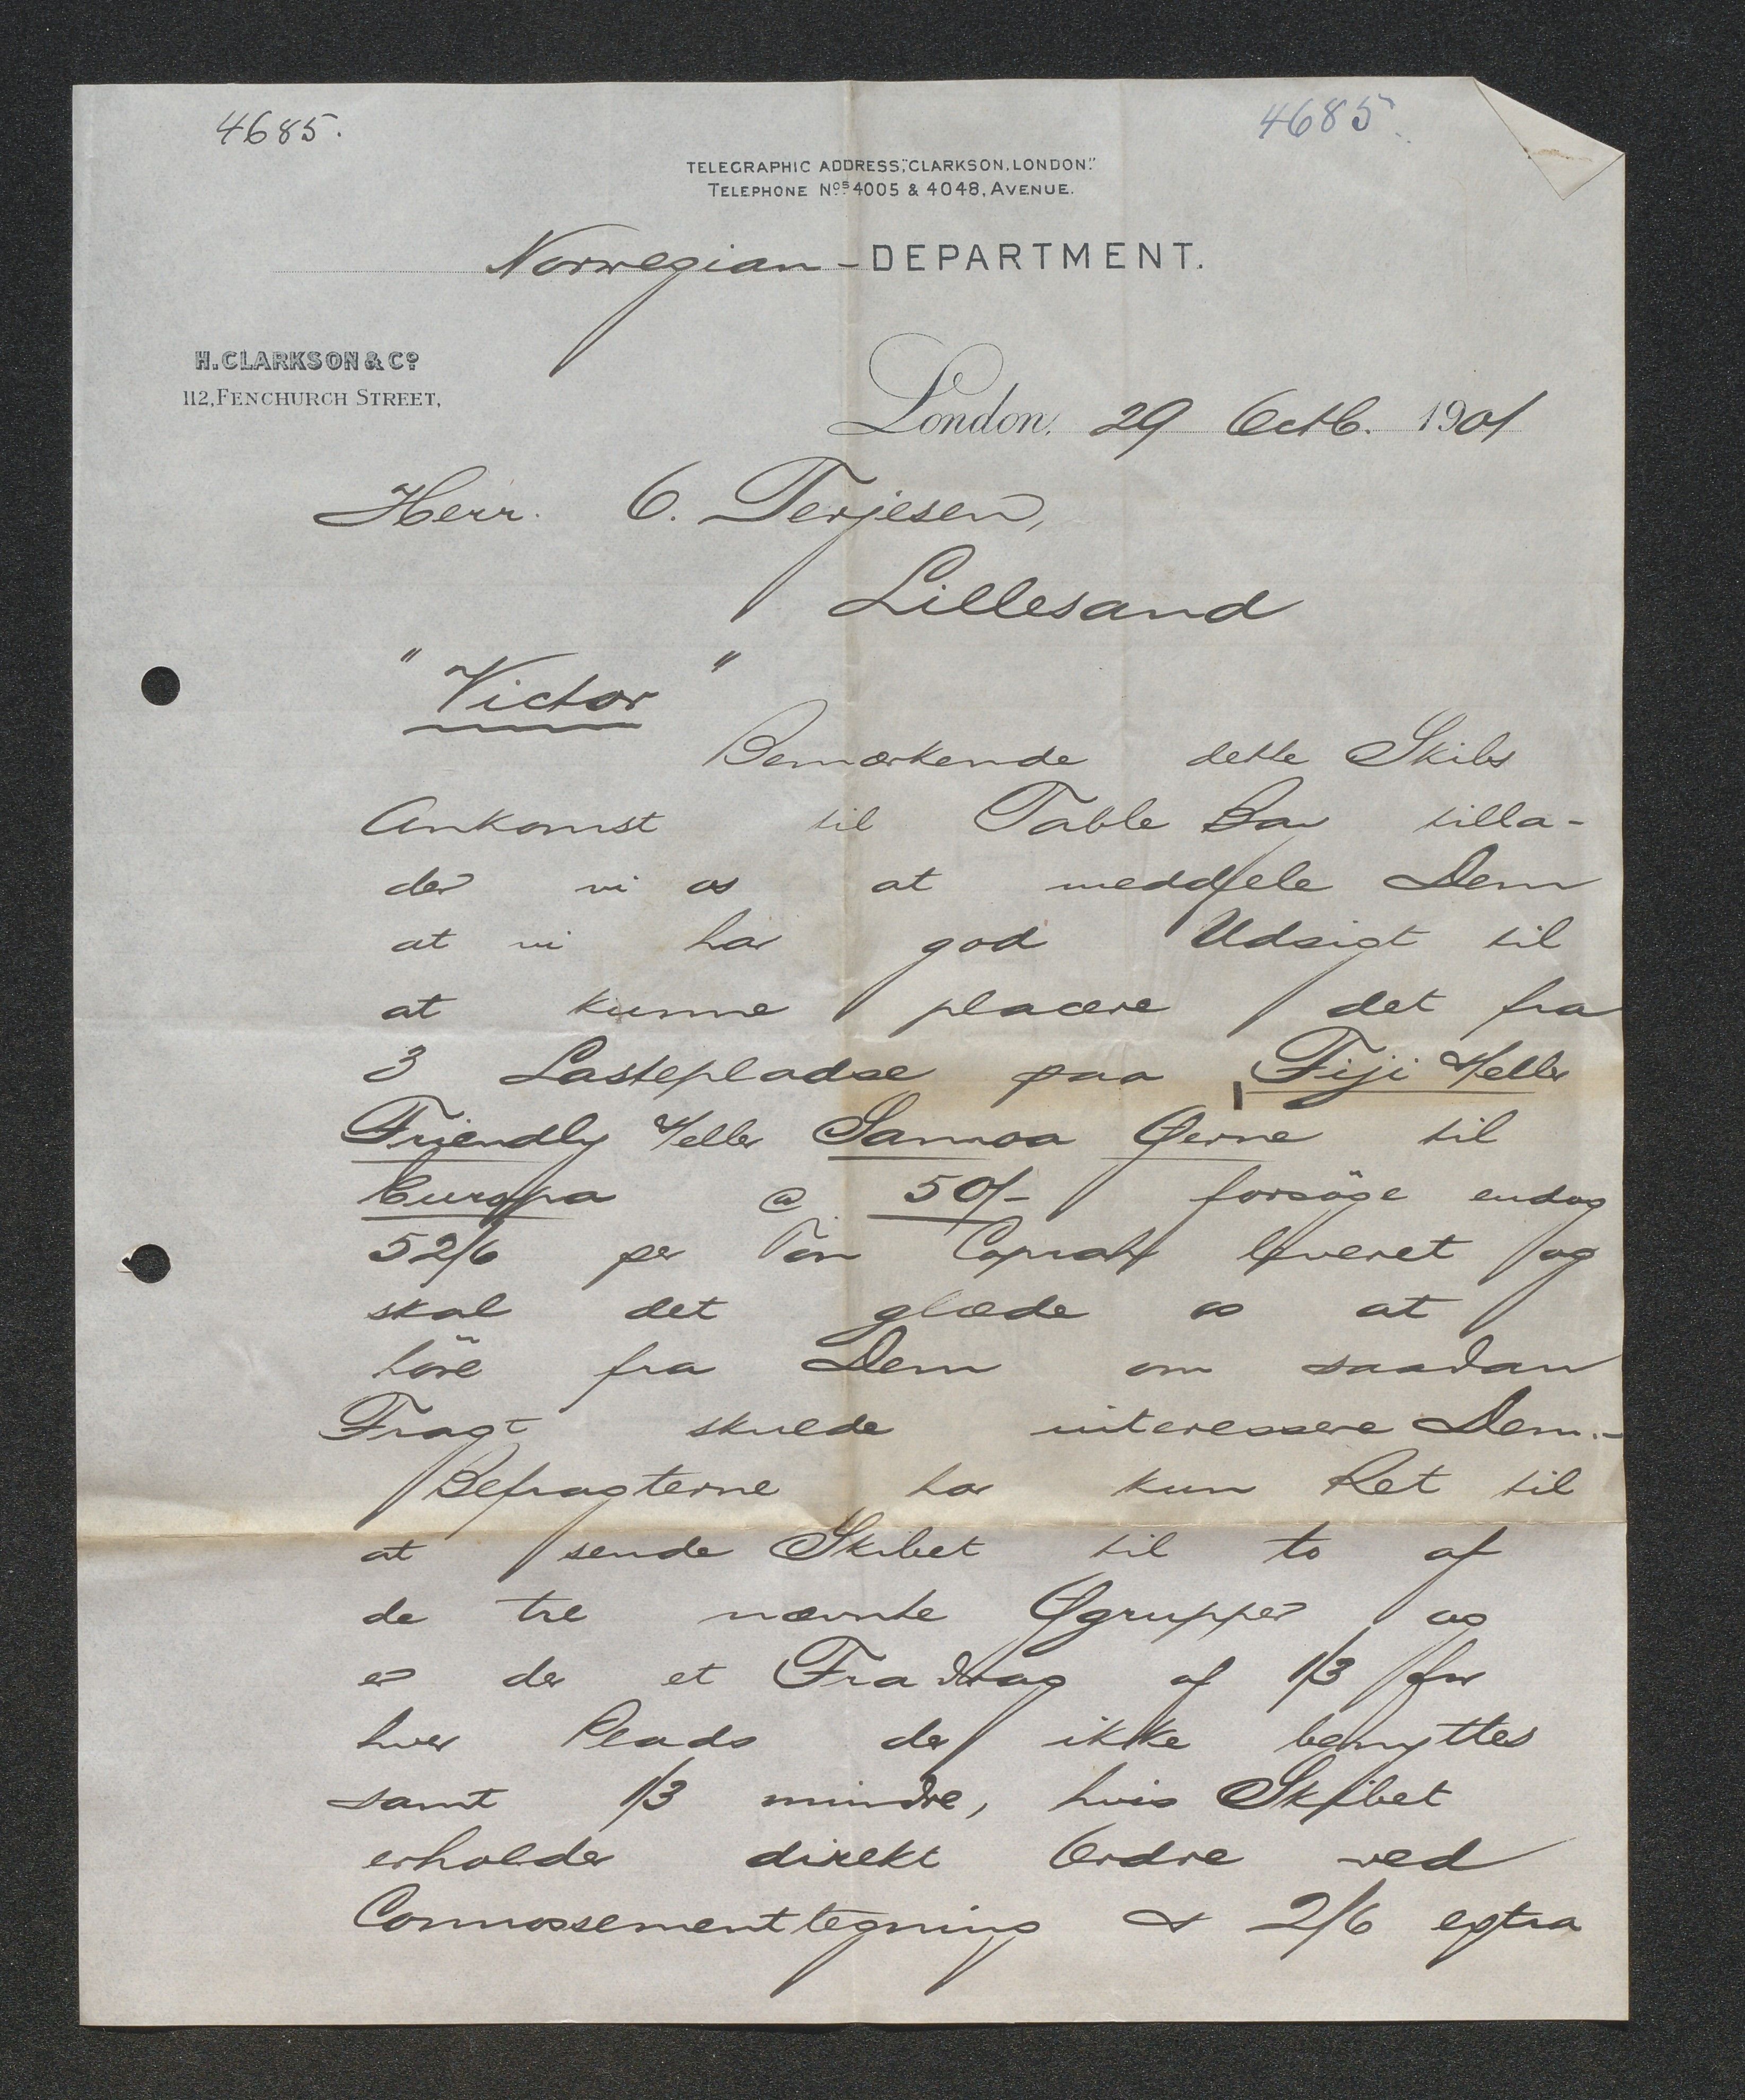 4685.
4685.
TELEGRAPHIC ADDRESS, "CLARKSON, LONDON."
TELEPHONE Nos 4005 & 4048, AVENUE.
Norwegian - DEPARTMENT.
H. CLARKSON & Co.
112, FENCHURCH STREET,
London, 29 Octb. 1901
Herr. O. Terjesen,
Lillesand
"Victor"
Bemærkende dette Skibs
Ankomst til Table Bay tilla-
der vi os at meddele Dem
at vi har god Udsigt til
at kunne placere det fra
3 Lastepladse paa Fiji &/eller
Friendly &/eller Samoa Øerne til
Europa @ 50/- forsöge endog
52/6 per Ton Coprah leveret og
skal det glæde os at
höre fra Dem om saadan
Fragt skulde interessere Dem.-
Befragterne har kun Ret til
at sende Skibet til to af
de tre nævnte Øgrupper og
er der et Fradrag af 1/3 for
hver Plads der ikke benyttes
samt 1/3 mindre, hvis Skibet
erholder direkt Ordre ved
Connossementtegning & 2/6 extra